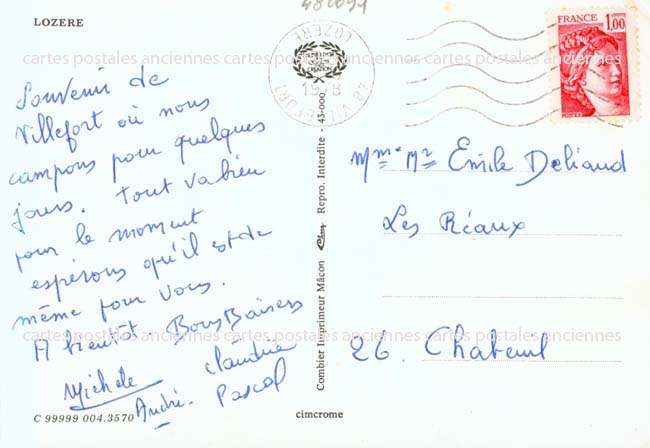 LOZERE
48009
48 VILLEFORT
LOZERE
1978
FRANCE
1,00
POSTES
cartes postales anciennes cartes postales anciennes cartes postales anciennes
Souvenir de
Villefort où nous
campons pour quelques
jours. Tout va bien
pour le moment
espérons qu'il est de
même pour vous.
A bientôt. Bons Baisers
Michèle Claudine
André. Pascal
C 99999 004.3570
Combier Imprimeur Mâcon Cim Repro. Interdite - 43-000
Mme Mr Emile Deliaud
Les Réaux
26. Chateuil
cartes postales anciennes cartes postales anciennes cartes postales anciennes
cimcrome